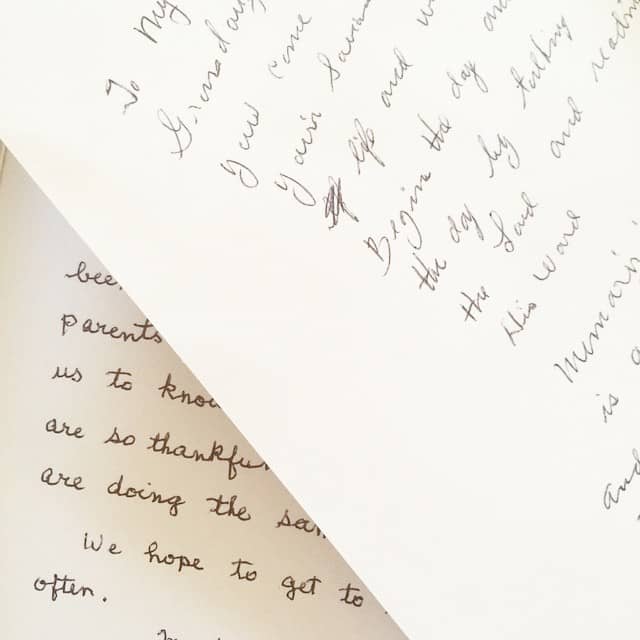 To My
you come
your
life and
Begin the day and
the day by talking
the Lord and
His Word
is
and
bee
parents
us to know
are so thankfu
are doing the
We hope to get to
often.